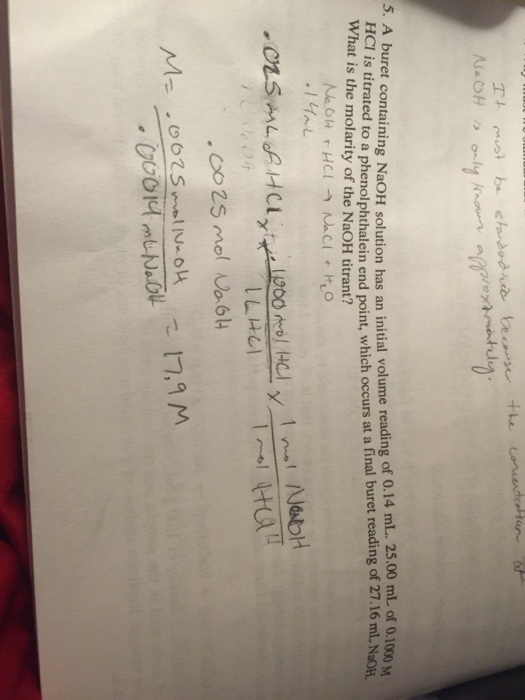 It must be standardized because the concentration of
NaOH is only known approximately.
5. A buret containing NaOH solution has an initial volume reading of 0.14 mL. 25.00 mL of 0.1000 M
HCl is titrated to a phenolphthalein end point, which occurs at a final buret reading of 27.16 mL NaOH.
What is the molarity of the NaOH titrant?
NaOH + HCl → NaCl + H2O
.14mL
.025mL of HCl x .1000 mol HCl / 1 L HCl x 1 mol NaOH / 1 mol HCl
.0025 mol NaOH
M = .0025 mol NaOH / .00014 mL NaOH = 17,9 M